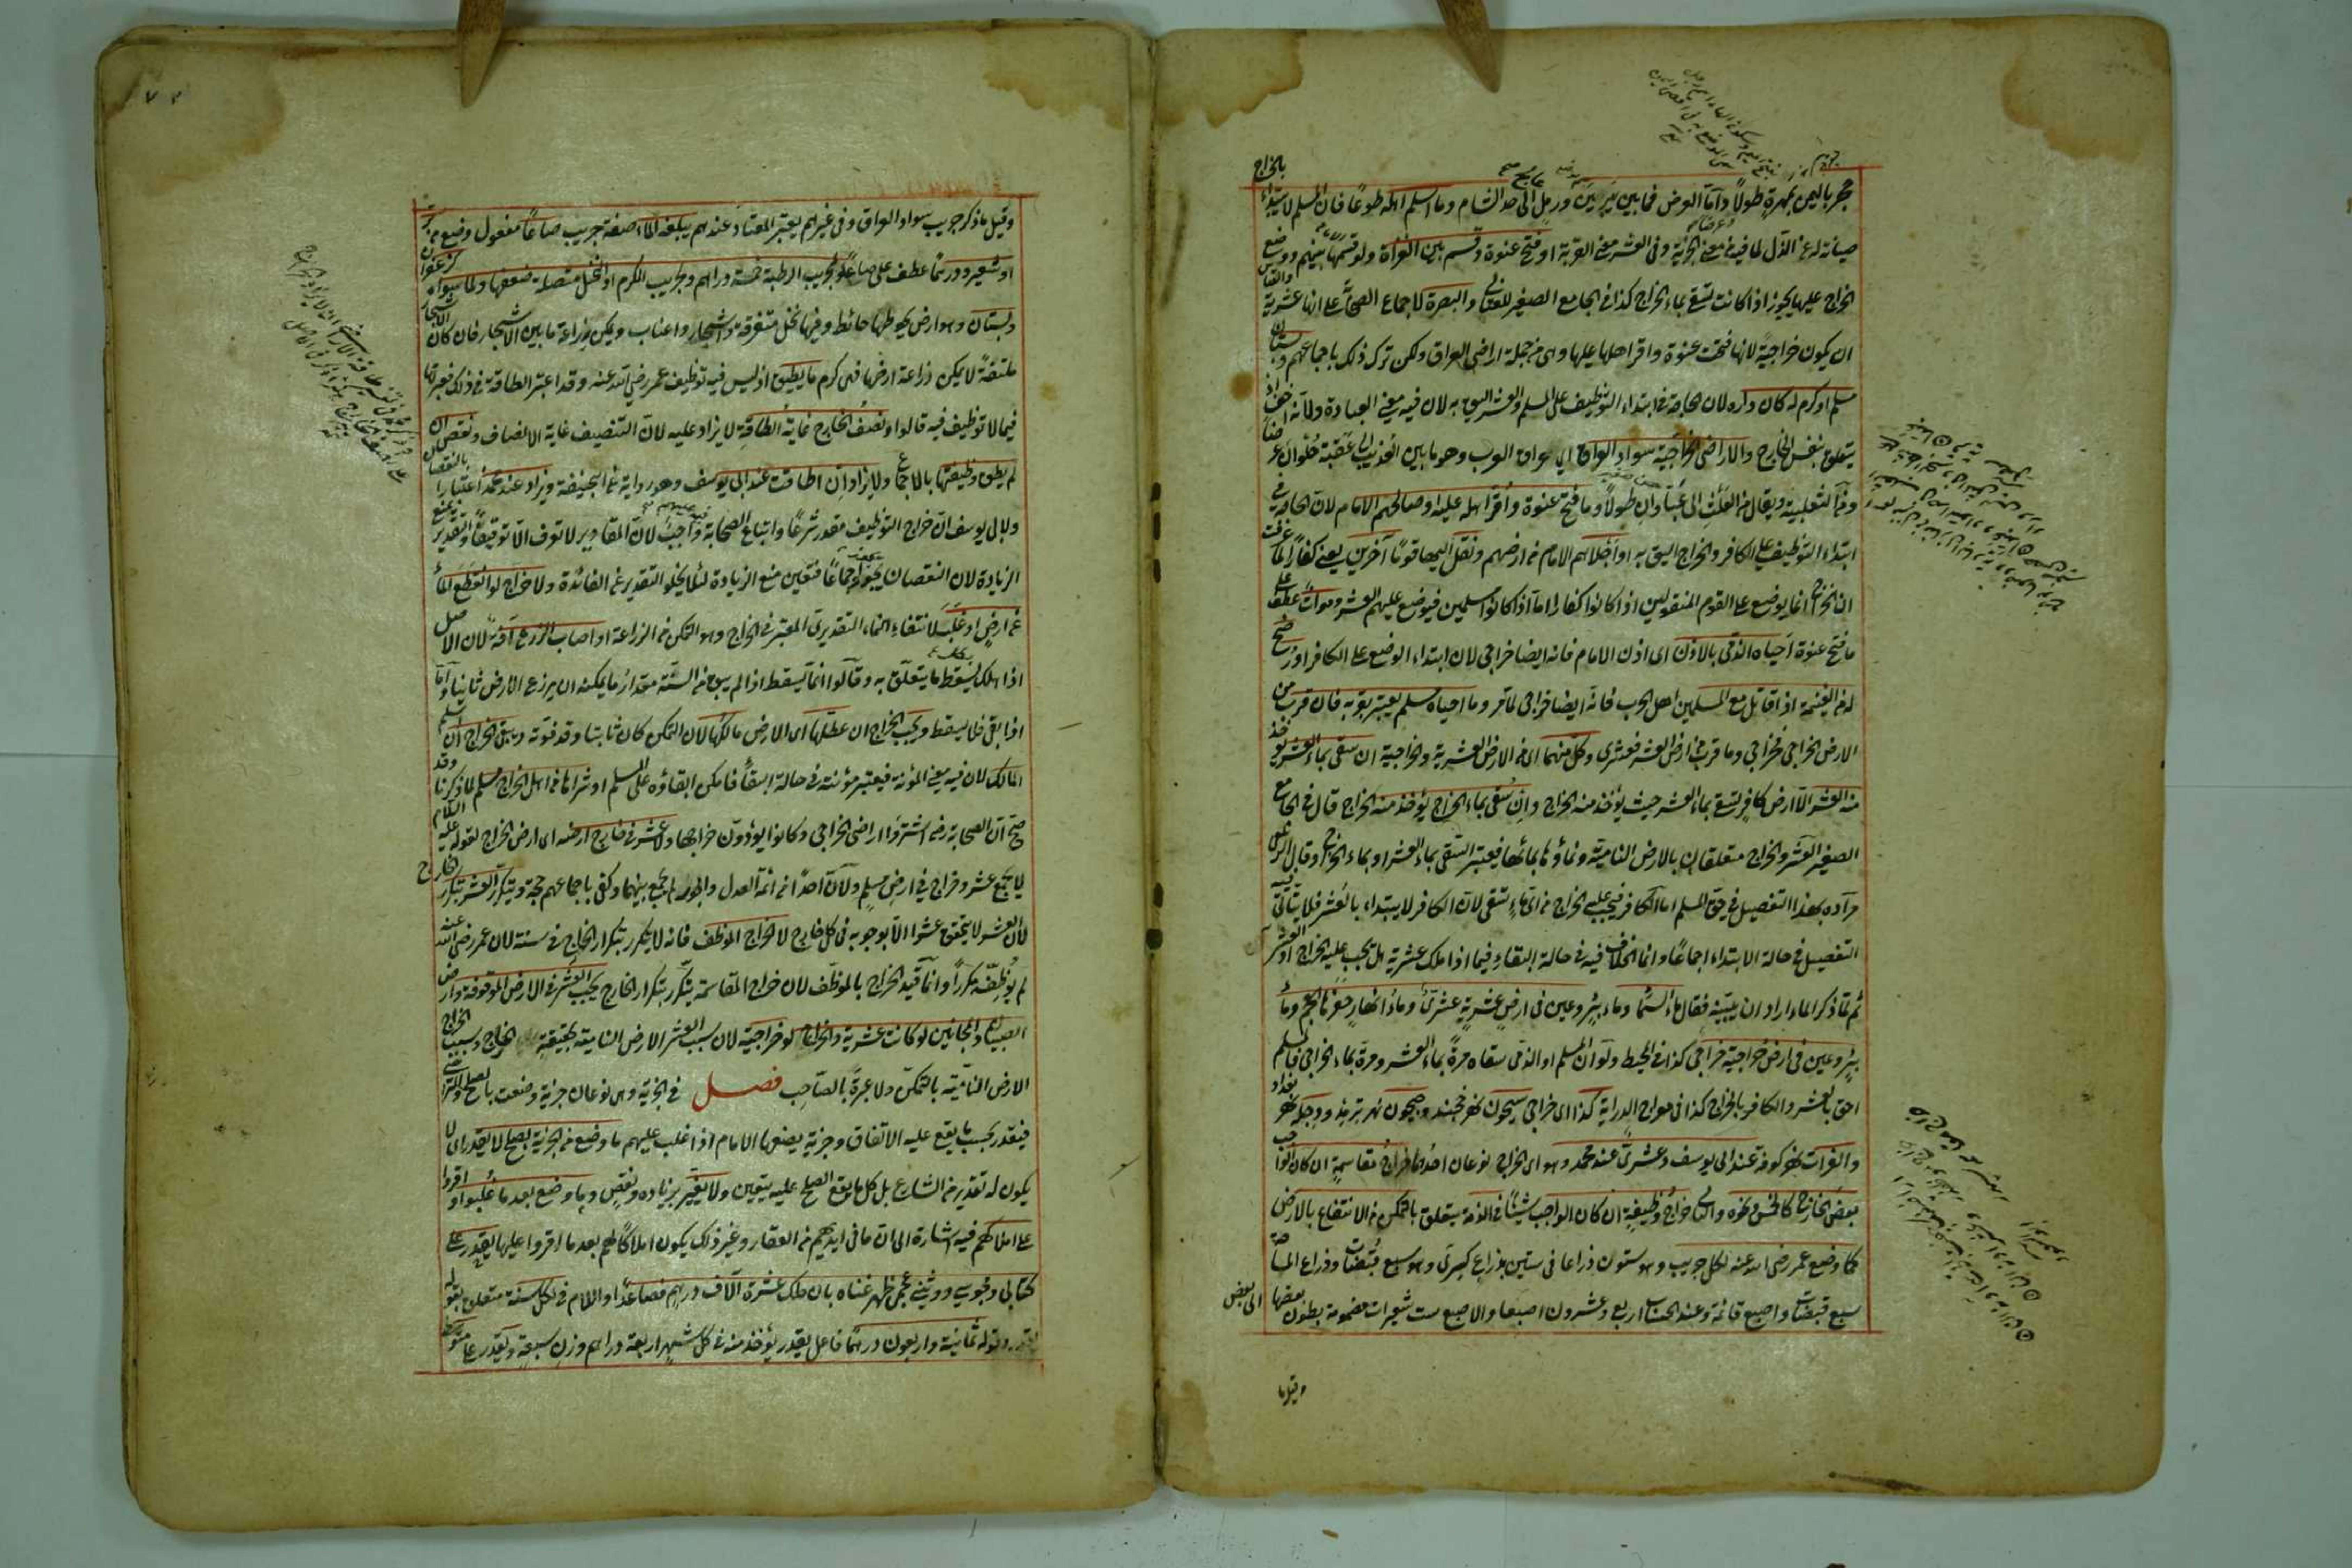 حجر باليمن بمهرة طولا واما العرض فما بين يبرين ورمل عالج الى حد الشام وما اسلم اهله طوعا فان المسلم لا يبتدأ
بالخراج
صيانة له عن الذل لما فيه من معنى الجزية وفى العشر معنى القربة او فتح عنوة وقسم بين الغزاة ولو قسمها بينهم ووضع
الخراج عليها يجوز اذا كانت تسقى بماء الخراج كذا فى الجامع الصغير للعتابى والبصرة لاجماع الصحابة على انها عشرية والقياس
ان يكون خراجية لانها فتحت عنوة واقر اهلها عليها وهى من جملة اراضى العراق ولكن ترك ذلك باجماعهم وبستان
مسلم او كرم له كان داره لان الحاجة فى ابتداء التوظيف على المسلم والعشر اليق به لان فيه معنى العبادة ولانه اخف اذ
يتعلق بنفس الخارج والاراضى الخراجية سواد العراق اى عراق العرب وهو ما بين العذيب الى عقبة حلوان عرضا
ومن الثعلبية ويقال من العلث الى عبادان طولا وما فتح عنوة واقر اهله عليه او صالحهم الامام لان الحاجة فى
ابتداء التوظيف على الكافر والخراج اليق به او اجلاهم الامام من ارضهم ونقل اليها قوما آخرين يعنى كفارا لما عرفت
ان الخراج انما يوضع على القوم المنقولين اذا كانوا كفارا اما اذا كانوا مسلمين فيوضع عليهم العشر وموات عطف على
ما فتح عنوة احياه الذمى بالاذن اى اذن الامام فانه ايضا خراجى لان ابتداء الوضع على الكافر او رضخ
له من الغنيمة اذا قاتل مع المسلمين اهل الحرب فانه ايضا خراجى لما مر وما احياه مسلم يعتبر بقربه فان قرب من
الارض الخراجى فخراجى وما قرب من ارض العشر فعشرى وكل منهما اى من الارض العشرية والخراجية ان سقى بماء العشر يؤخذ
منه العشر الا ارض كافر تسقى بماء العشر حيث يؤخذ منه الخراج وان سقى بماء الخراج يؤخذ منه الخراج قال فى الجامع
الصغير العشر والخراج متعلقان بالارض النامية ونماؤها بمائها فيعتبر السقى بماء العشر او بماء الخراج وقال الزيلعى
مراده بهذا التفصيل فى حق المسلم اما الكافر فيجب عليه الخراج من اى ماء تسقى لان الكافر لا يبتداء بالعشر فلا يتأتى فيه
التفصيل فى حالة الابتداء اجماعا وانما الخلاف فيه فى حالة البقاء فيما اذا ملك عشرية هل تجب عليه الخراج او العشر
ثم لما ذكر الماء اراد ان يبينه فقال ماء السماء وماء بئر وعين فى ارض عشرية عشرى وماء انهار حفرها العجم وماء
بئر وعين فى ارض خراجية خراجى كذا فى المحيط ولو ان المسلم او الذمى سقاه مرة بماء العشر ومرة بماء الخراجى فالمسلم
احق بالعشر والكافر بالخراج كذا فى معراج الدراية كذا اى خراجى سيحون نهر خجند وجيحون نهر ترمذ ودجلة نهر بغداد
والفرات نهر كوفة عند ابى يوسف وعشرى عند محمد وهو اى الخراج نوعان احدهما خراج مقاسمة ان كان الواجب
بعض الخارج كالخمس ونحوه والثانى خراج وظيفة ان كان الواجب شيئا فى الذمة يتعلق بالتمكن من الانتفاع بالارض
كما وضع عمر رضى الله عنه لكل جريب وهو ستون ذراعا فى ستين بذراع كسرى وهو سبع قبضات وذراع المساحة
سبع قبضات واصبع قائمة وعند الحساب اربع وعشرون اصبعا والاصبع ست شعيرات مضمومة بطون بعضها الى بعض
وقيل ما
وقيل ما ذكر جريب سواد العراق وفى غيرهم يعتبر المعتاد عندهم يبلغه الماء صفة جريب صاعا مفعول وضع من بر
او شعير ودرهما عطف على صاعا ولجريب الرطبة خمسة دراهم ولجريب الكرم او النخل متصلة ضعفها ولما سواه كزعفران
وبستان وهو ارض يحوطها حائط وفيها نخل متفرقة واشجار واعناب ويمكن زراعة ما بين الاشجار فان كان الاشجار
ملتفة لا يمكن زراعة ارضها فهى كرم ما يطيق اذ ليس فيه توظيف عمر رضى الله عنه وقد اعتبر الطاقة فى ذلك فيعتبرها
فيما لا توظيف فيه قالوا ونصف الخارج غاية الطاقة لا يزاد عليه لان التنصيف غاية الانصاف ونقص ان
لم يطق وظيفتها بالاجماع ولا يزاد ان اطاقت عند ابى يوسف وهو رواية عن ابى حنيفة ويزاد عند محمد اعتبارا بالنقصان
ولابى يوسف ان خراج التوظيف مقدر شرعا واتباع الصحابة فيه واجب لان المقادير لا تعرف الا توقيفا والتقدير يمنع
الزيادة لان النقصان يجوز اجماعا فتعين منع الزيادة لئلا يخلو التقدير عن الفائدة ولا خراج لو انقطع الماء
عن ارض او غلب لانتفاء النماء التقديرى المعتبر فى الخراج وهو التمكن من الزراعة او اصاب الزرع آفة لان الاصل
اذا هلك يسقط ما يتعلق به وقالوا انما يسقط اذا لم يبق من السنة مقدار ما يمكنه ان يزرع الارض ثانيا واما
اذا بقى فلا يسقط ويجب الخراج ان عطلها اى الارض مالكها لان التمكن كان ثابتا وقد فوته ويبقى الخراج ان اسلم
المالك لان فيه معنى المؤنة فيعتبر مؤنته فى حالة البقاء فامكن ابقاؤه على المسلم او شراها من اهل الخراج مسلم لما ذكرنا وقد
صح ان الصحابة رضى اشتروا اراضى الخراجى وكانوا يؤدون خراجها ولا عشر فى خارج ارضه اى ارض الخراج لقوله عليه السلام
لا يجتمع عشر وخراج فى ارض مسلم ولان احدا من ائمة العدل والجور لم يجمع بينهما وكفى باجماعهم حجة ويتكرر العشر بتكرر الخارج
لان العشر لا يتحقق عشرا الا بوجوبه فى كل خارج لا الخراج الموظف فانه لا يتكرر بتكرار الخارج فى سنة لان عمر رضى الله عنه
لم يوظفه مكررا وانما قيد الخراج بالموظف لان خراج المقاسمة يتكرر بتكرار الخارج يجب العشر فى الارض الموقوفة وارض
الصبيان والمجانين لو كانت عشرية والخراج لو خراجية لان سبب العشر الارض النامية بحقيقة الخارج وسبب الخراج
الارض النامية بالتمكن ولا عبرة بالصاحب فصل فى الجزية وهى نوعان جزية وضعت بالصلح والتراضى
فيتقدر بحسب ما يقع عليه الاتفاق وجزية يضعها الامام اذا غلب عليهم ما وضع من الجزية بصلح لا يقدر اى لا
يكون له تقدير من الشارع بل كل ما يقع الصلح عليه يتعين ولا يغير بزيادة ونقص وما وضع بعد ما غلبوا واقروا
على املاكهم فيه اشارة الى ان ما فى ايديهم من العقار وغير ذلك يكون املاكا لهم بعد ما اقروا عليها يقدر على
كتابى ومجوسى ووثنى عجمى ظهر غناه بان ملك عشرة آلاف درهم فصاعدا واللام فى لكل سنة متعلق بقوله
يقدر وقوله ثمانية واربعون درهما فاعل يقدر يؤخذ منه فى كل شهر اربعة دراهم وزن سبعة ويقدر على متوسط